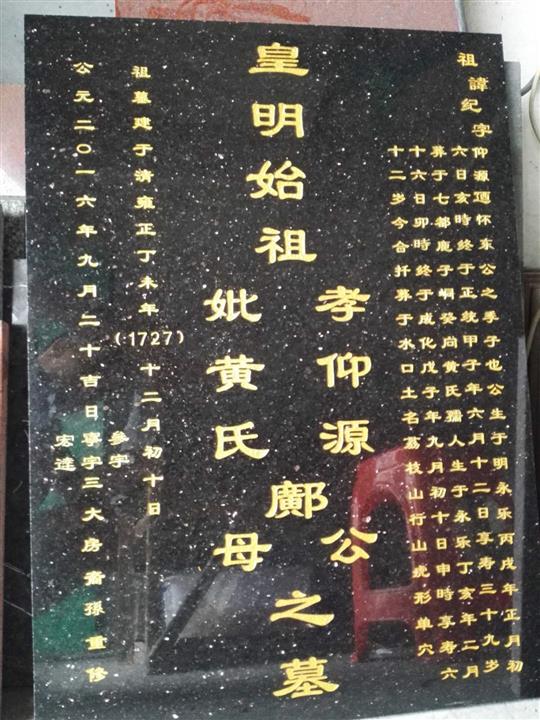 祖諱纪字仰源廼怀东公之季子也公生于明永乐丙戌年正月初
六日亥時终于正统甲子年六月十二日享寿三十九岁
葬于七都鹿子峒癸尚黄氏孺人生于永乐丁亥年二月
十六日卯時终于成化戊子年九月初十日申時享寿六
十二岁今合扦葬于水口土名荔枝山行山虎形单穴
皇明始祖
考仰源
鄺公
妣黄氏
母
之墓
祖墓建于清雍正丁未年(1727)十二月初十日
公元二〇一六年九月二十吉日
参宇
享字三大房裔孫重修
宏達